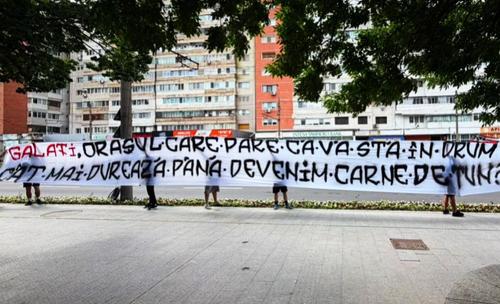 GALAȚI, ORAȘUL·CARE·PARE·CA·VA·STA·ÎN·DRUM
CÂT·MAI·DUREAZĂ·PÂNĂ·DEVENIM·CARNE·DE·TUN